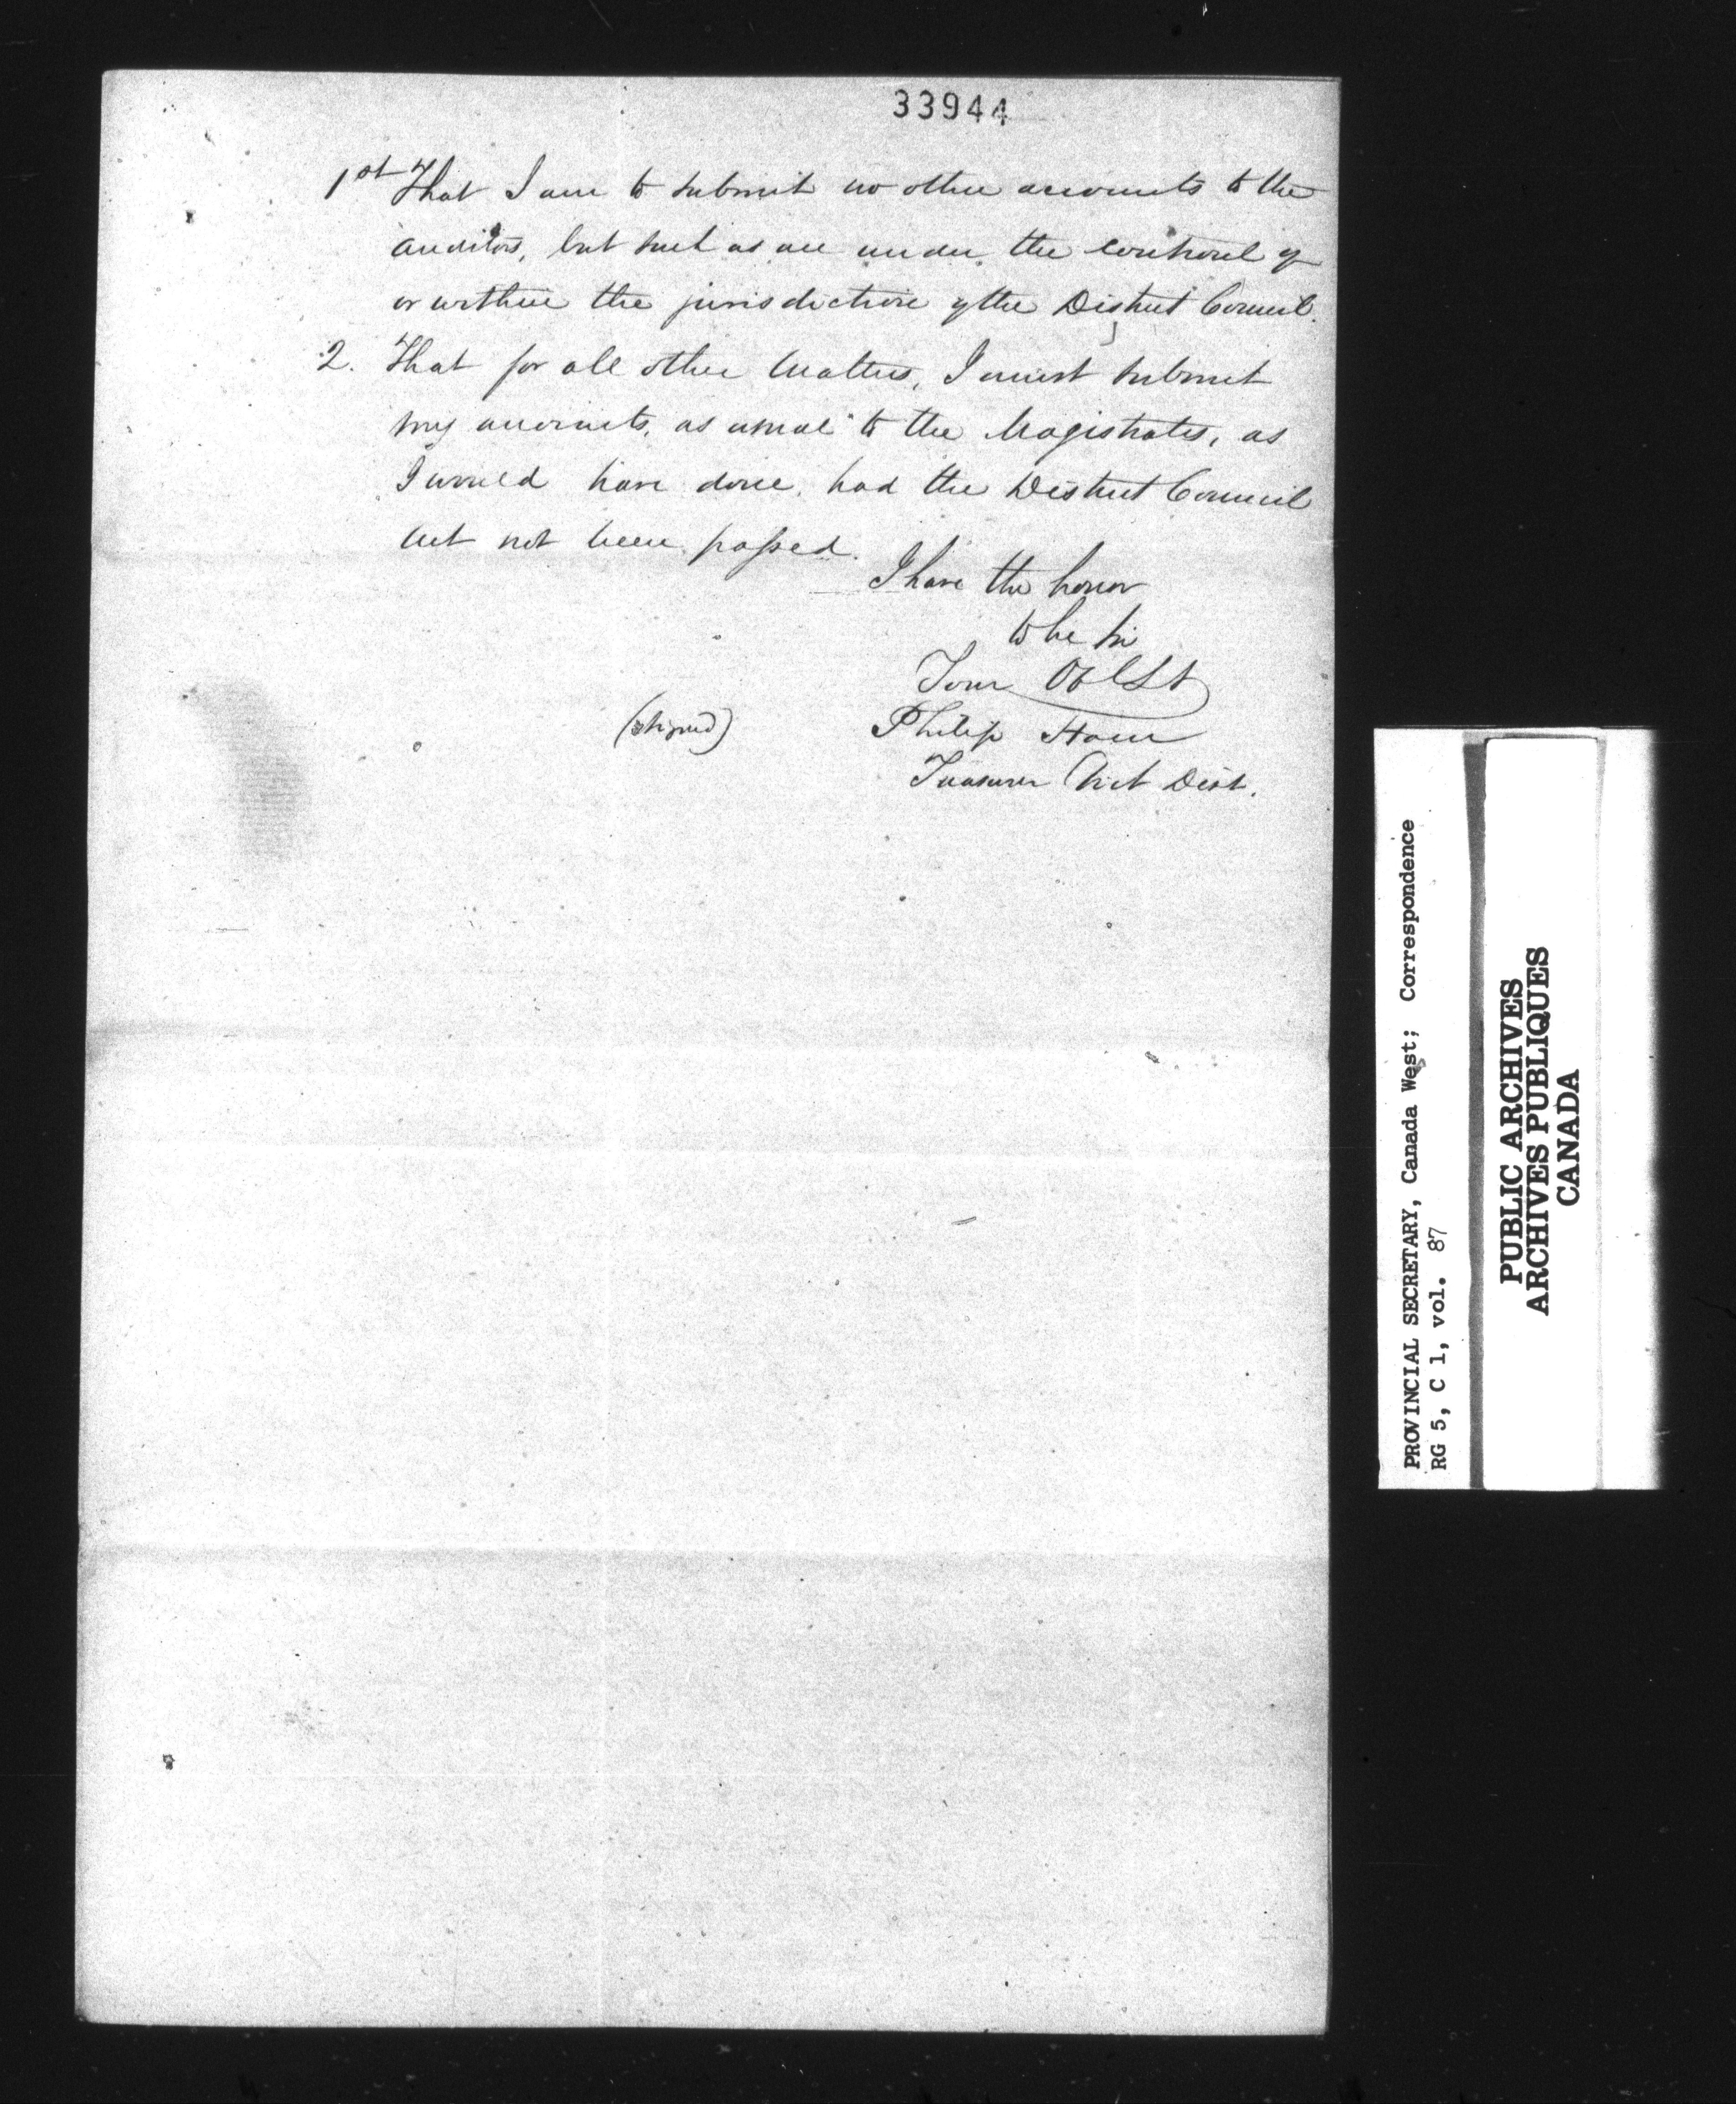 33944
1st That I am to submit no other accounts to the
auditors, but such as are under the controul of
or within the jurisdiction of the District Council.
2. That for all other matters, I must submit
my accounts, as usual to the Magistrates, as
I would have done, had the District Council
act not been passed.
I have the honor
to be Sir
Your Obt St
(signed) Philip Ham
Treasurer Vict Dist.
PROVINCIAL SECRETARY, Canada West; Correspondence
RG 5, C 1, vol. 87
PUBLIC ARCHIVES
ARCHIVES PUBLIQUES
CANADA